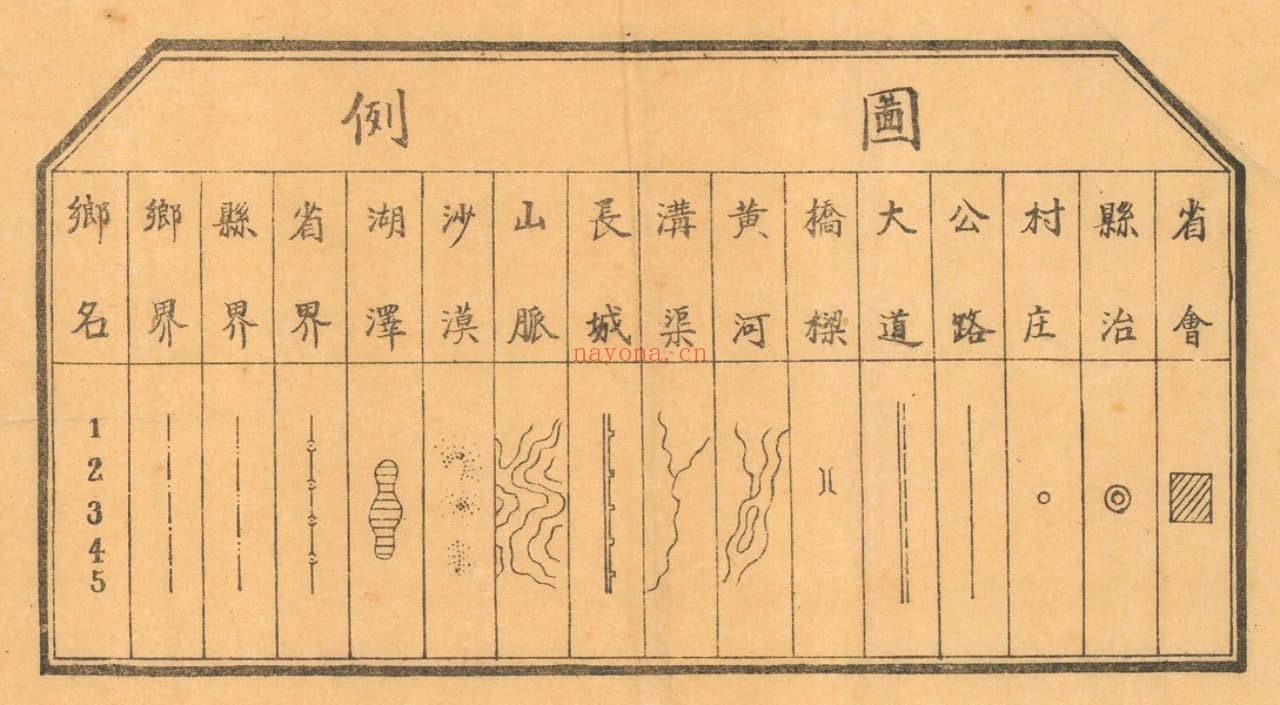 圖例
省會
縣治
村庄
公路
大道
橋樑
黄河
溝渠
長城
山脈
沙漠
湖澤
省界
縣界
鄉界
鄉名
1
2
3
4
5
nayona.cn